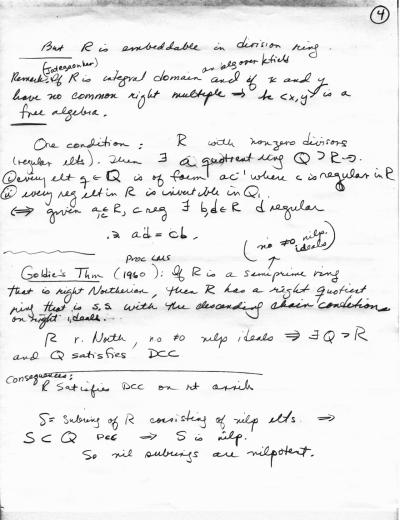 4
But R is embeddable in division ring.
(Jategaonkar) an alg over k field
Remark: If R is integral domain and if x and y
have no common right multiple → k<x,y> is a
free algebra.
One condition: R with nonzero divisors
(regular elts). Then ∃ a quotient ring Q ⊃ R →.
① every elt q ∈ Q is of form ac⁻¹ where c is regular in R
② every reg elt in R is invertible in Q.
⟺ given a, c ∈ R, c reg ∃ b, d ∈ R d regular
∋ ad = cb.
(no ≠0 nilp. ideals)
Proc LMS
Goldie's Thm (1960): If R is a semiprime ring
that is right Noetherian, then R has a right quotient
ring that is S.S. with the descending chain condition
on right ideals.
R r. Noeth, no ≠0 nilp ideals ⟹ ∃ Q ⊃ R
and Q satisfies DCC
Consequences:
R satisfies DCC on rt annih
S = subring of R consisting of nilp elts. ⟹
S ⊂ Q DCC ⟹ S is nilp.
So nil subrings are nilpotent.